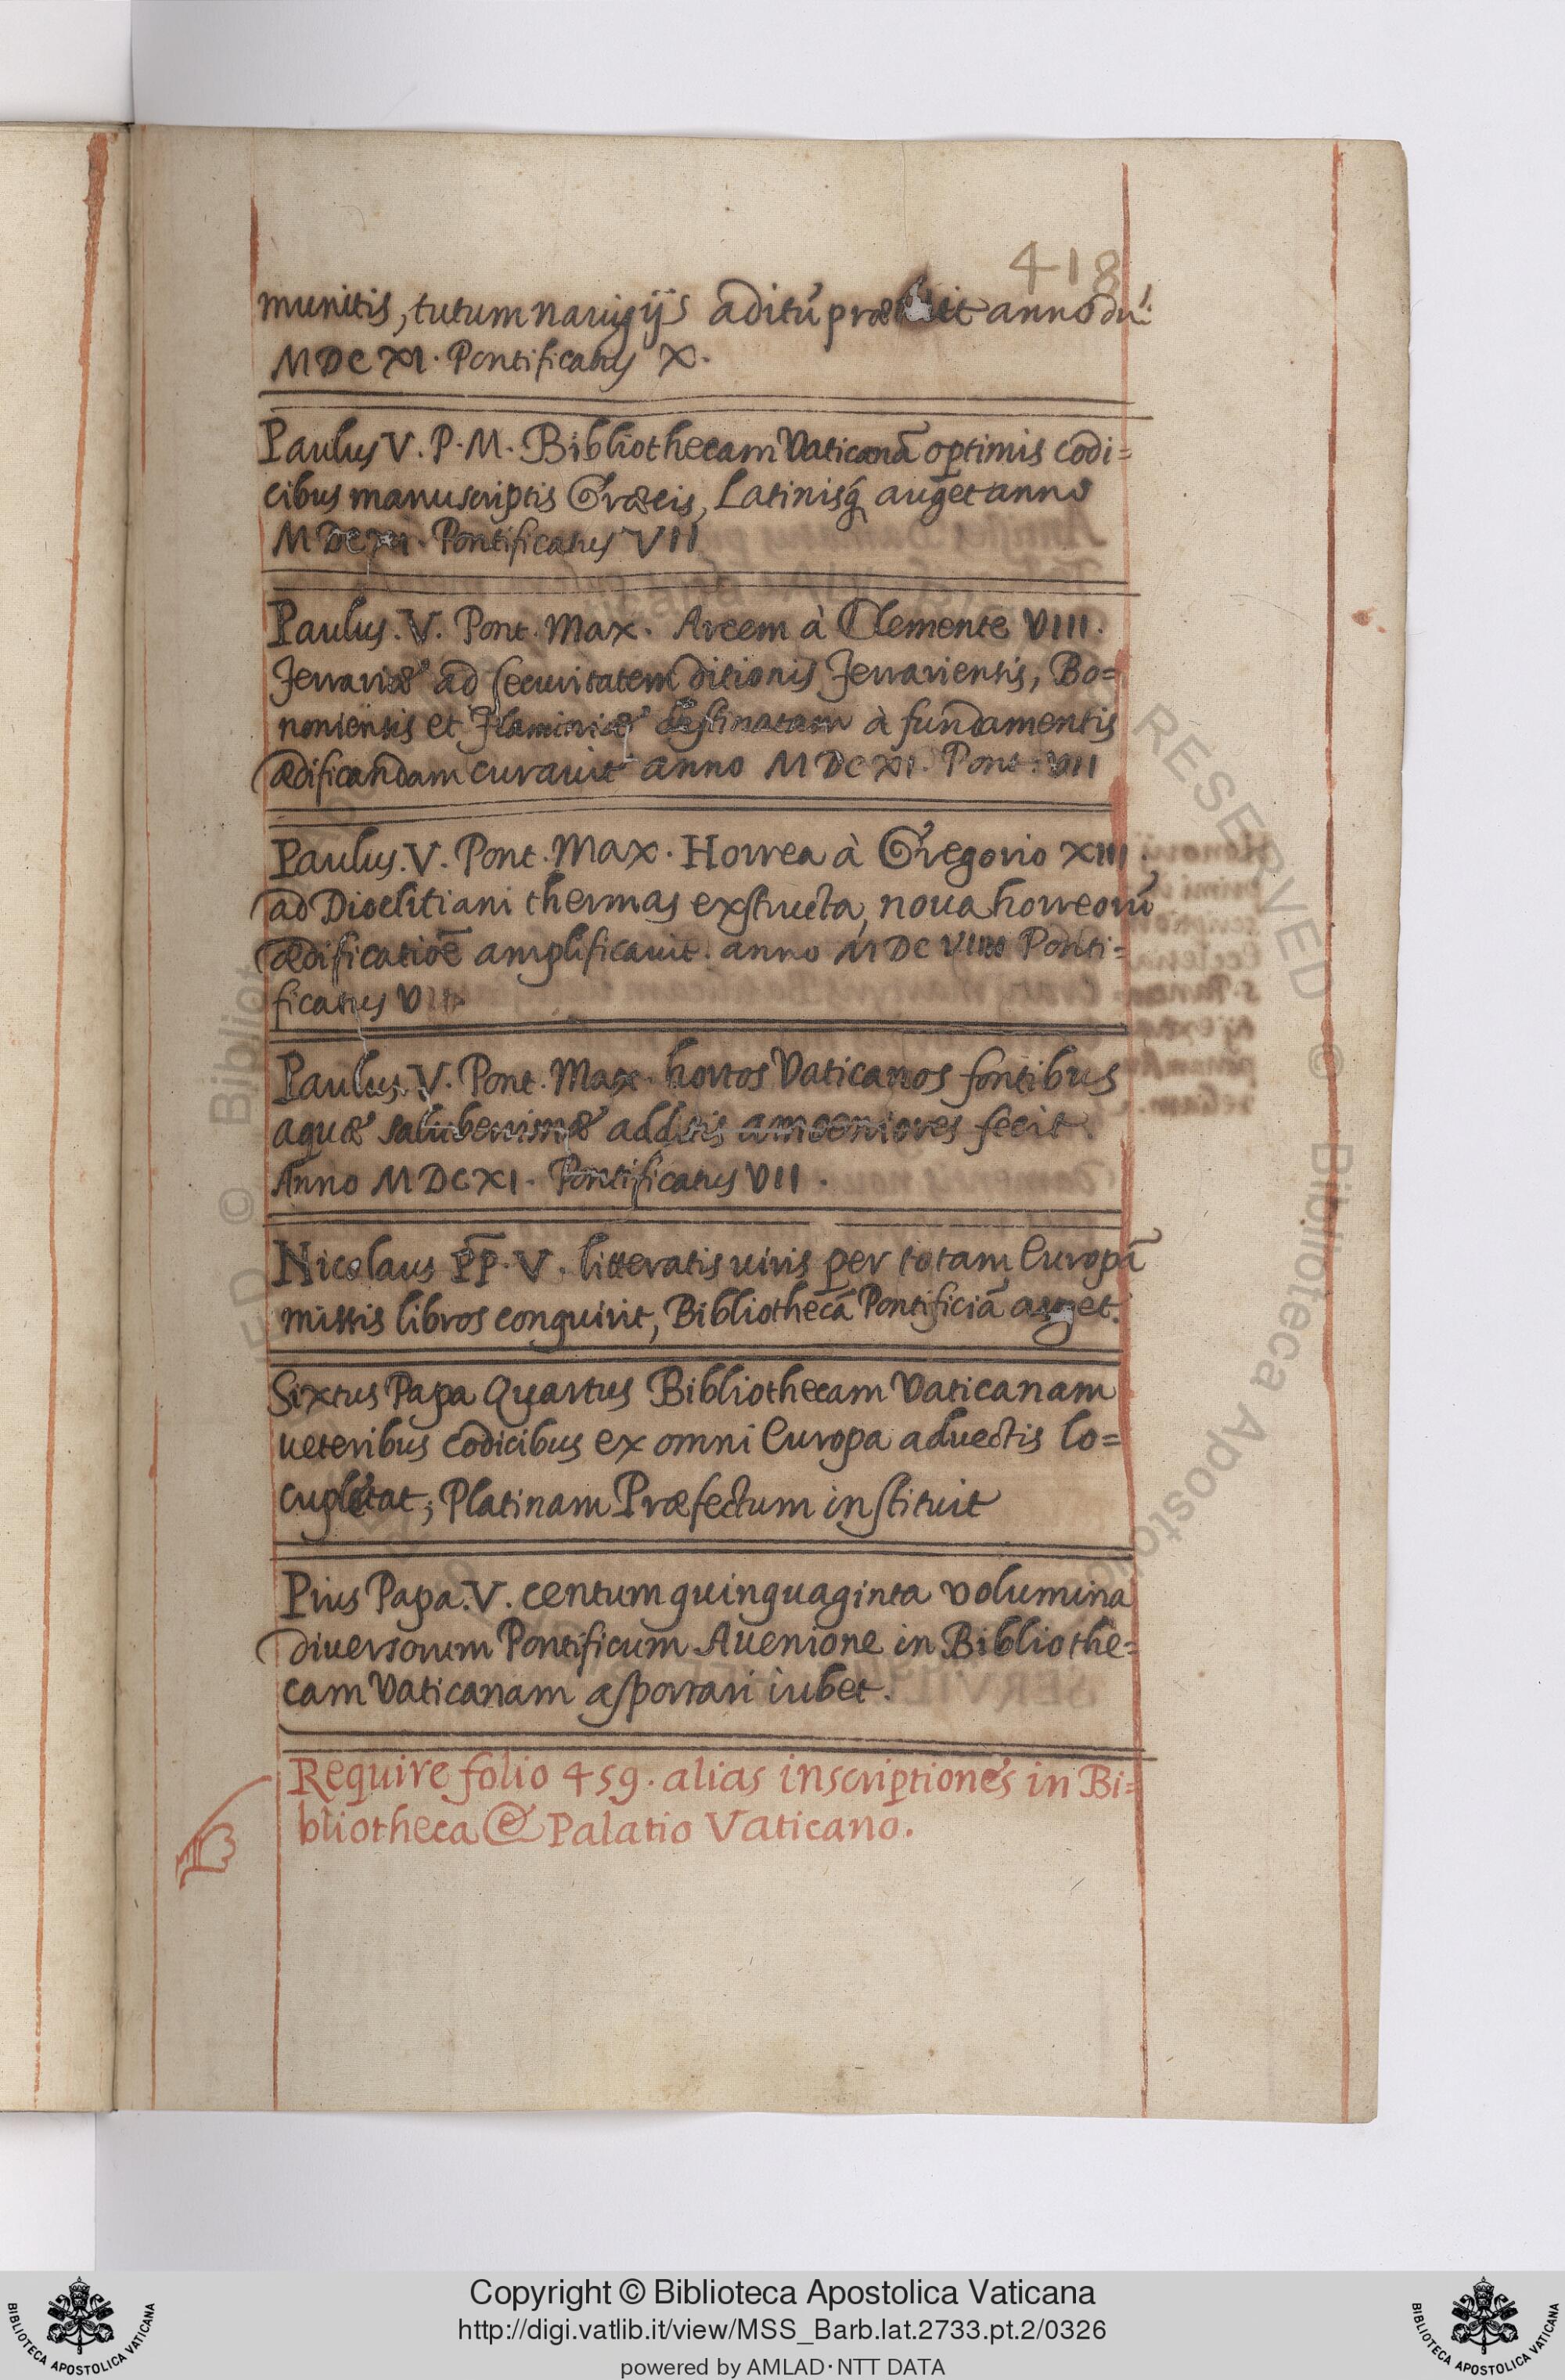 418
munitis, tutum nauigijs aditũ præbuit anno dñi.
MDCXI. Pontificatus X.
Paulus V. P. M. Bibliothecam Vaticanã optimis codi=
cibus manuscriptis Græcis, Latinisq́ auget anno
MDCXI. Pontificatus VII
Paulus. V. Pont. Max. Arcem à Clemente VIII.
Ferrariæ ad securitatem ditionis Ferrariensis, Bo=
noniensis et Flaminiæ destinatam à fundamentis
ædificandam curauit anno MDCXI. Pont. VII
Paulus. V. Pont. Max. Horrea à Gregorio XIII.
ad Dioclitiani thermas exstructa, noua horreorũ
ædificatiõe amplificauit. anno MDC Ponti=
ficatus
Paulus. V. Pont. Max. hortos Vaticanos fontibus
aquæ saluberrimæ additis amoeniores fecit.
Anno MDCXI. Pontificatus VII.
Nicolaus P̃P. V. litteratis uiris per totam Europã
missis libros conquirit, Bibliothecã Pontificiã auget.
Sixtus Papa Quartus Bibliothecam Vaticanam
ueteribus codicibus ex omni Europa aduectis lo=
cupletat; Platinam Præfectum instituit
Pius Papa. V. centum quinquaginta volumina
diuersorum Pontificum Auenione in Bibliothe=
cam Vaticanam asportari iubet.
Require folio 459. alias inscriptiones in Bi=
bliotheca & Palatio Vaticano.
Copyright © Biblioteca Apostolica Vaticana
http://digi.vatlib.it/view/MSS_Barb.lat.2733.pt.2/0326
powered by AMLAD·NTT DATA
BIBLIOTECA APOSTOLICA VATICANA
BIBLIOTECA APOSTOLICA VATICANA